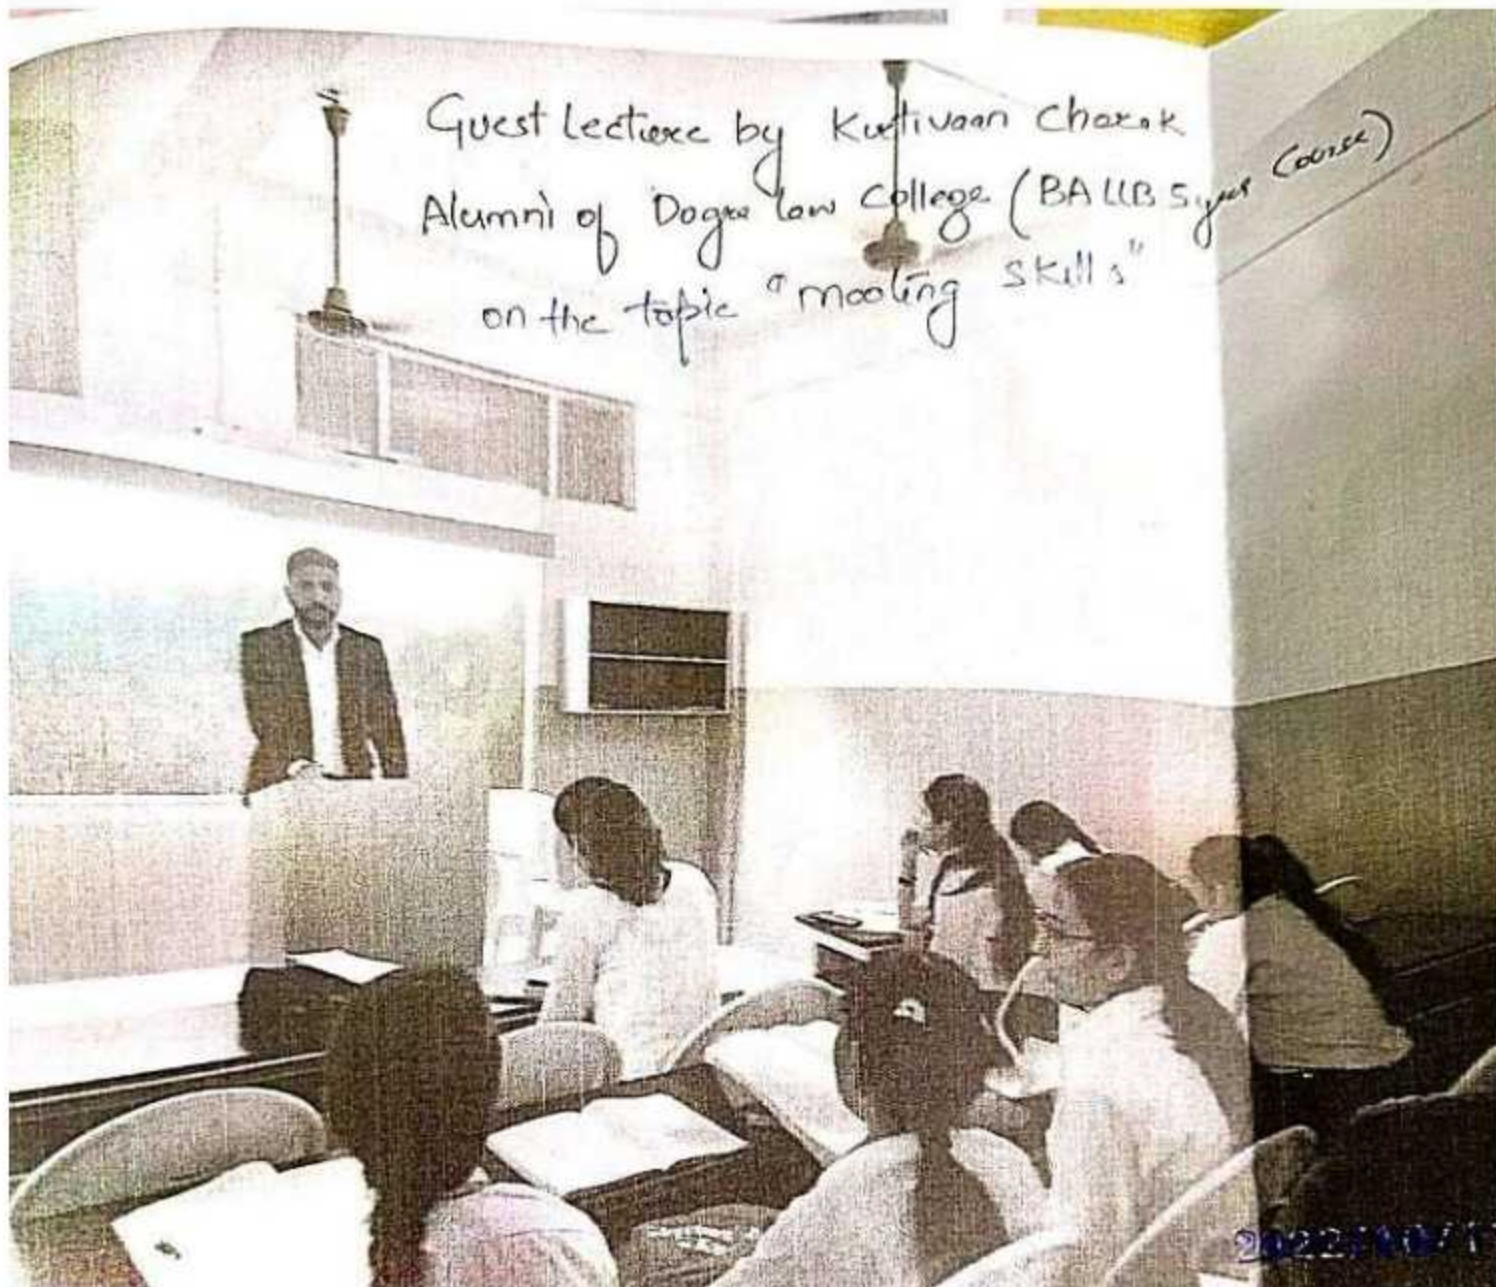 Guest Lecture by Kirtivaan Charak
Alumni of Dogra law College (BA LLB 5 year Course)
on the topic "mooting skills"